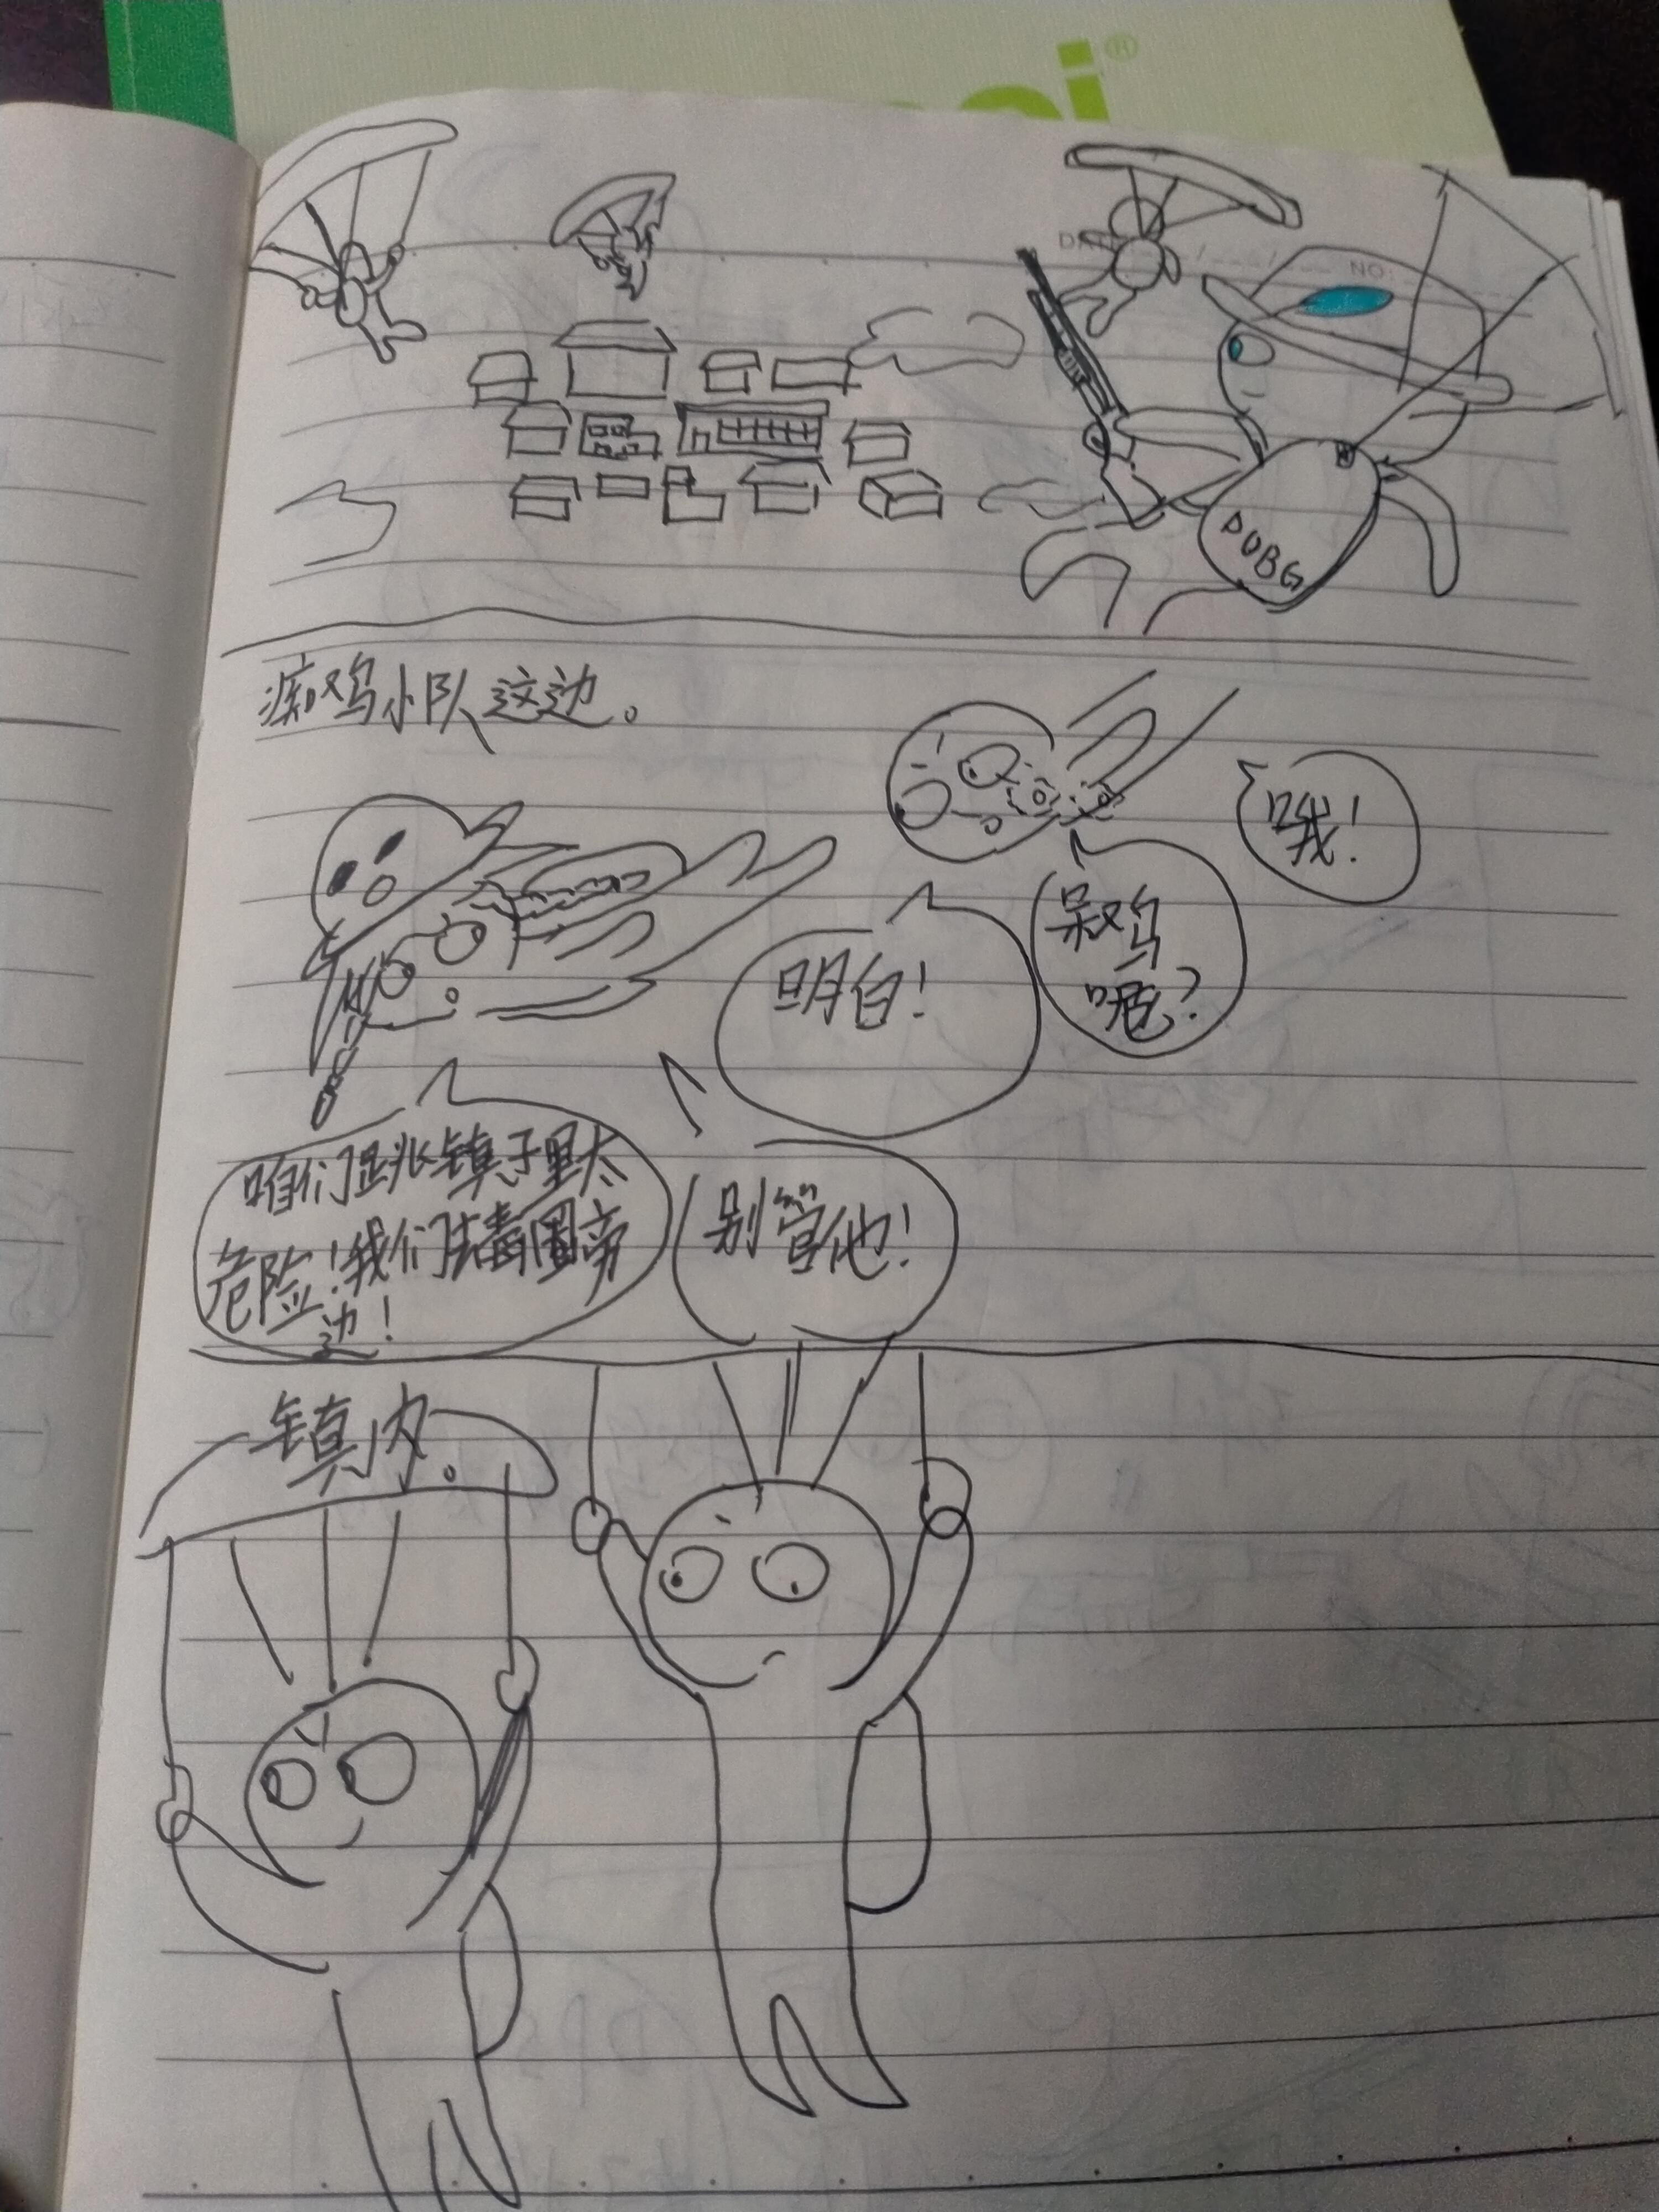 ®
DATE
NO:
PUBG
痴鸡小队这边。
哦!
呆鸡
呢?
明白!
咱们跳镇子里太
危险!我们去毒圈旁
边!
别管他!
镇内。